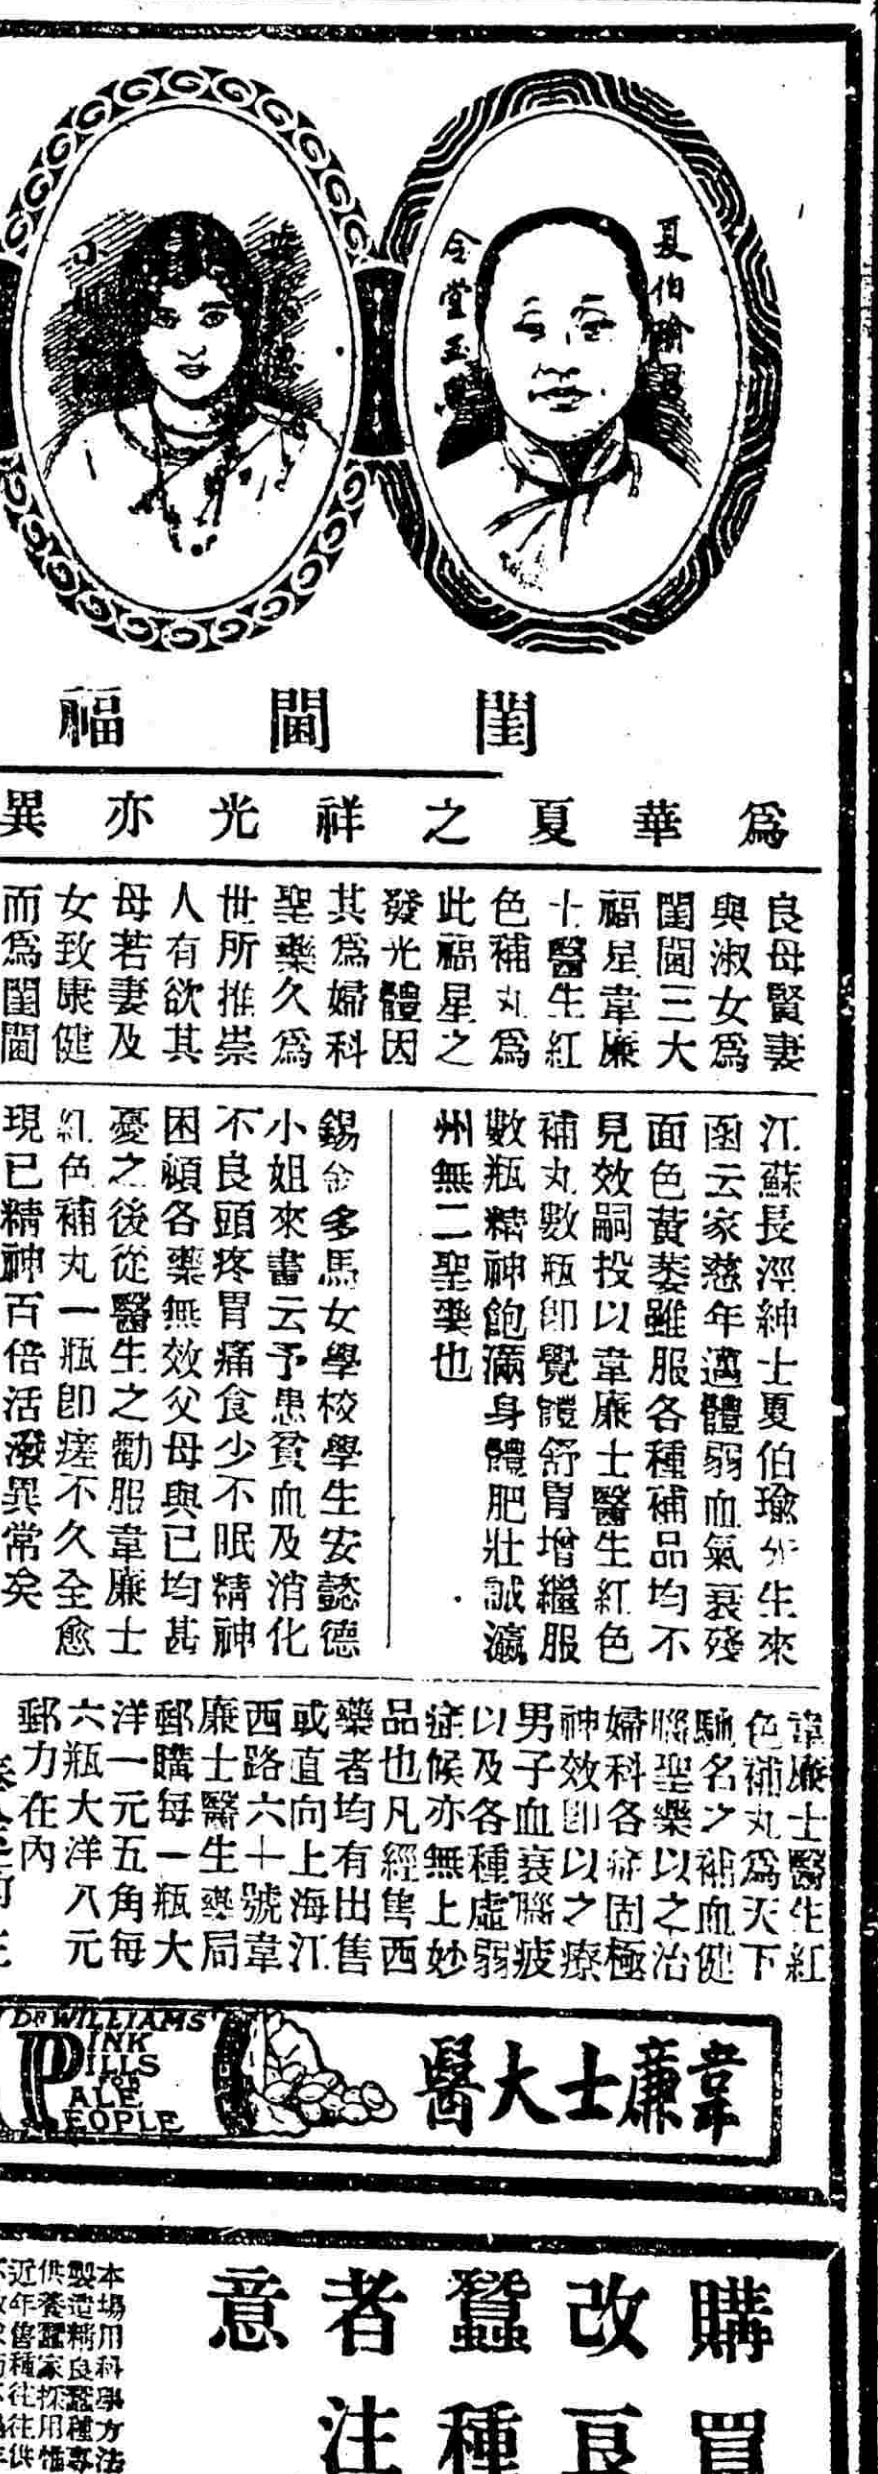 夏伯瑜
令堂玉
閨閫福
爲華夏之祥光亦異
良母賢妻
與淑女爲
閨閫三大
福星韋廉
士醫生紅
色補丸爲
此福星之
發光體因
其爲婦科
聖藥久爲
世所推崇
人有欲其
母若妻及
女致康健
而爲閨閫
江蘇長涇紳士夏伯瑜先生來
函云家慈年邁體弱血氣衰殘
面色黃萎雖服各種補品均不
見效嗣投以韋廉士醫生紅色
補丸數瓶卽覺體舒胃增繼服
數瓶精神飽滿身體肥壯誠瀛
州無二聖藥也
錫金多馬女學校學生安懿德
小姐來書云予患貧血及消化
不良頭疼胃痛食少不眠精神
困頓各藥無效父母與已均甚
憂之後從醫生之勸服韋廉士
紅色補丸一瓶卽瘥不久全愈
現已精神百倍活潑異常矣
韋廉士醫生紅
色補丸爲天下
馳名之補血健
腦聖藥以之治
婦科各症固極
神效卽以之療
男子血衰腦疲
以及各種虛弱
症候亦無上妙
品也凡經售西
藥者均有出售
或直向上海江
西路六十號韋
廉士醫生藥局
郵購每一瓶大
洋一元五角每
六瓶大洋八元
郵力在內
韋廉士大醫
DR WILLIAMS'
PINK
PILLS
FOR
PALE
PEOPLE
購改蠶者意
買良種注
本場用科學方法
製造精良蠶種專
供養蠶家採用惟
近年售種往往供